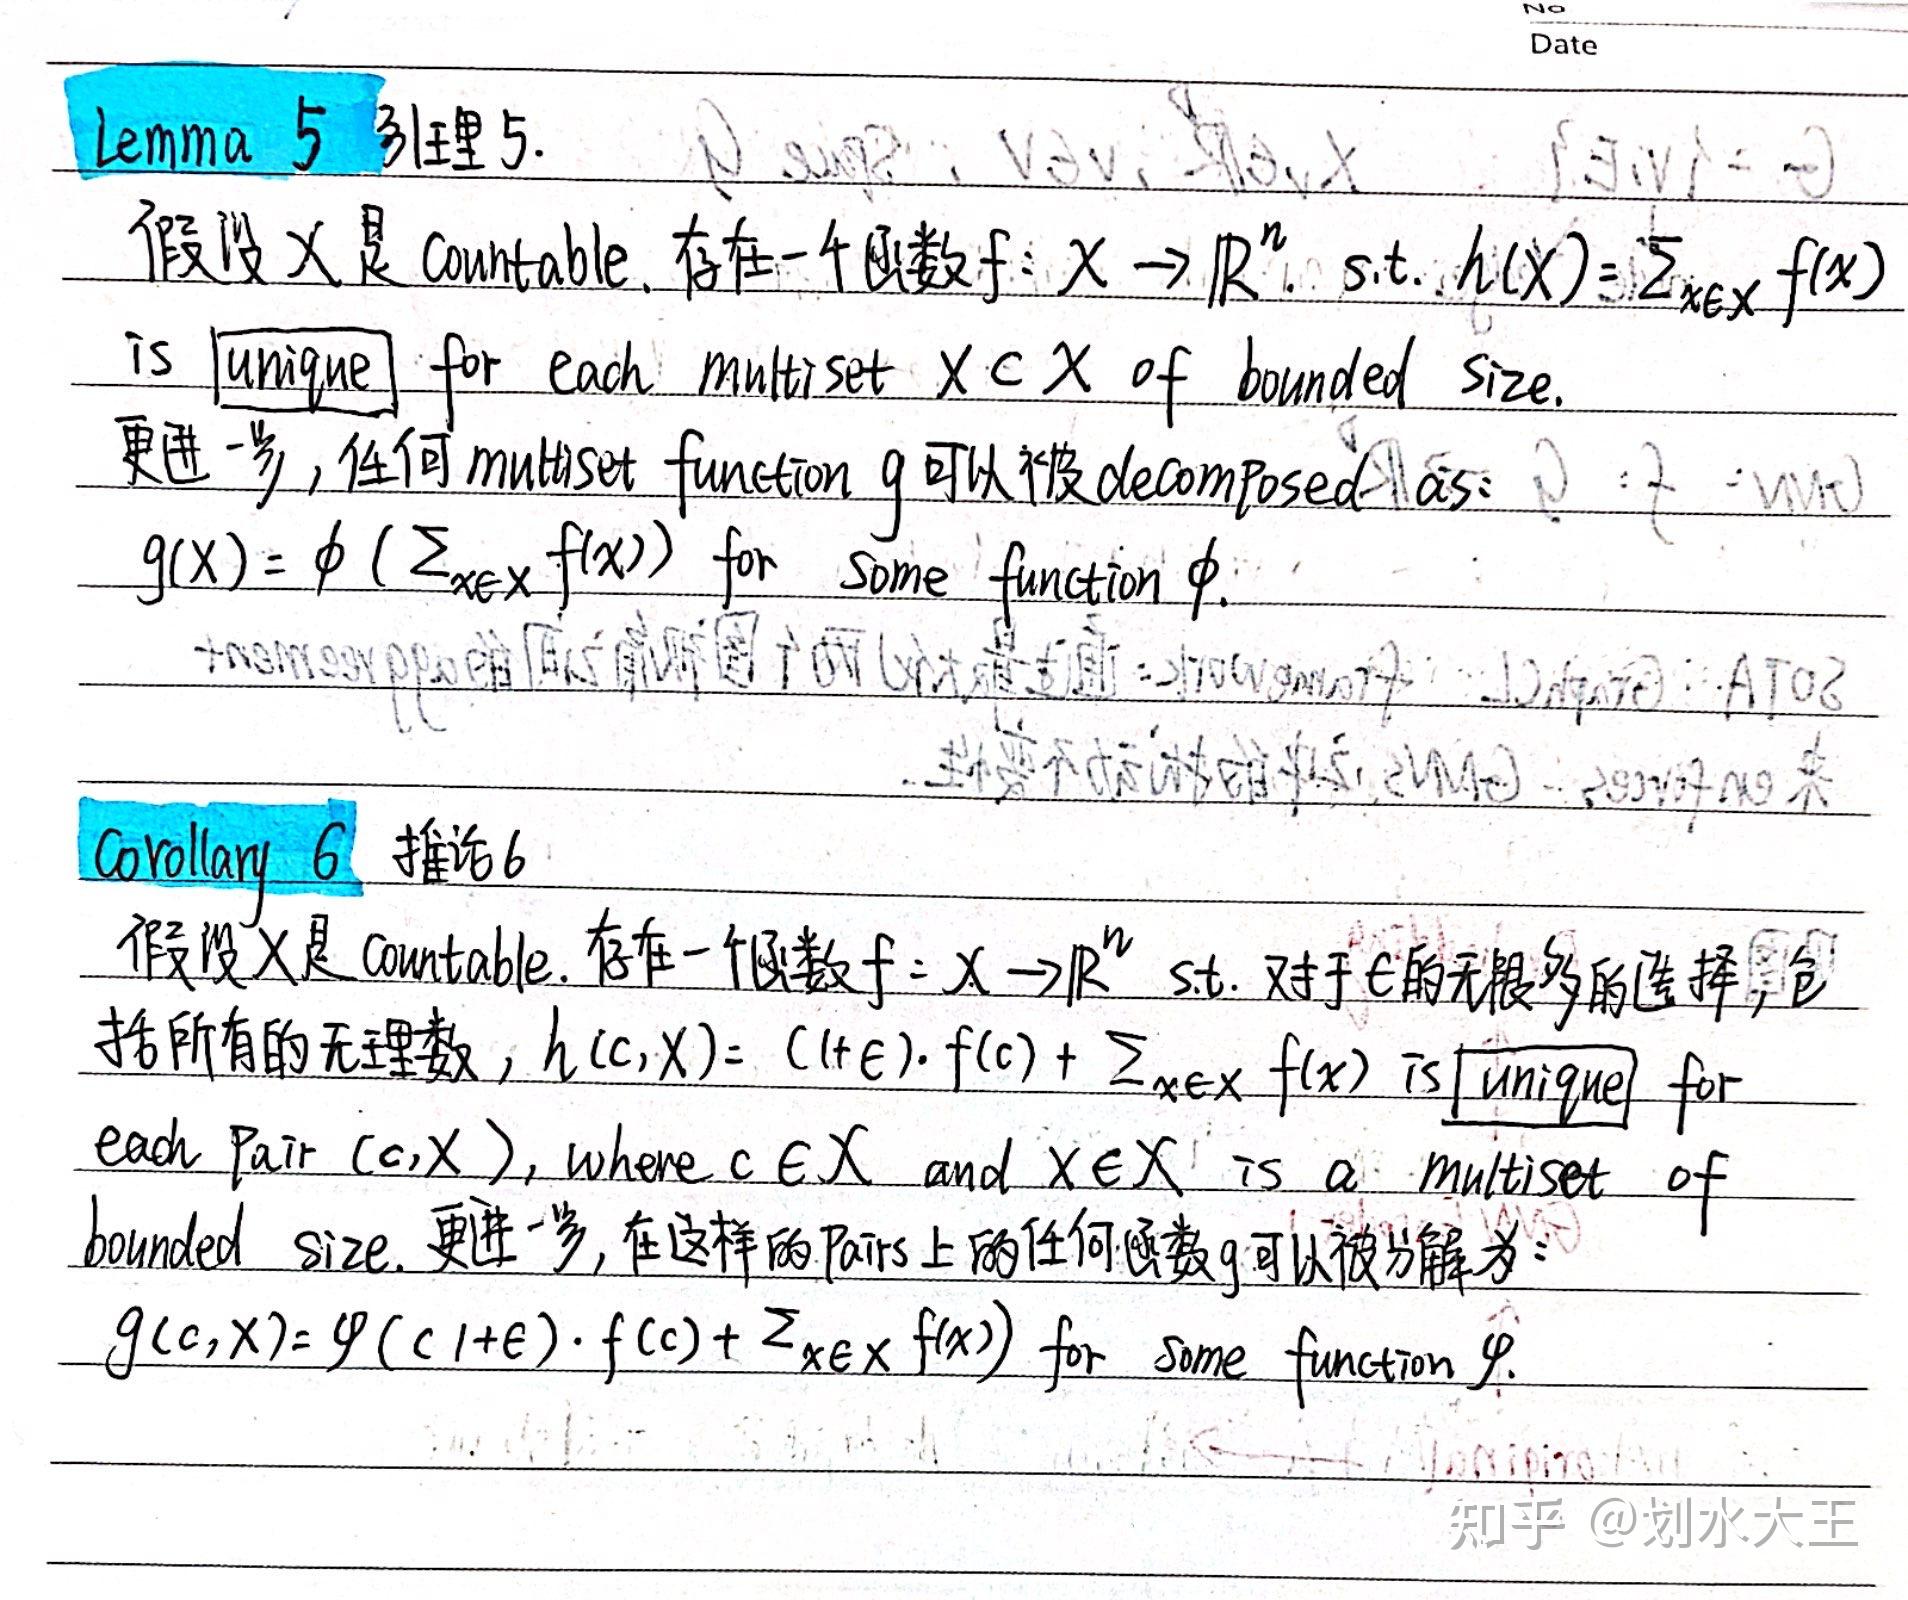 No
Date
Lemma 5 引理5.
假设 X 是 Countable. 存在一个函数f: X → ℝⁿ. s.t. h(X)=Σ_{x∈X} f(x)
is unique for each multiset X ⊂ X of bounded size.
更进一步, 任何 multiset function g 可以被decomposed as:
g(X) = ϕ ( Σ_{x∈X} f(x)) for some function ϕ.
Corollary 6 推论6
假设X是 Countable. 存在一个函数f: X → ℝⁿ s.t. 对于ϵ的无限多的选择, 包
括所有的无理数, h(c,X)= (1+ϵ)·f(c) + Σ_{x∈X} f(x) is unique for
each pair (c,X), where c ∈ X and X ∈ X is a multiset of
bounded size. 更进一步, 在这样的Pairs上的任何函数g可以被分解为:
g(c,X)= φ ( (1+ϵ)·f(c) + Σ_{x∈X} f(x)) for some function φ.
知乎 @划水大王